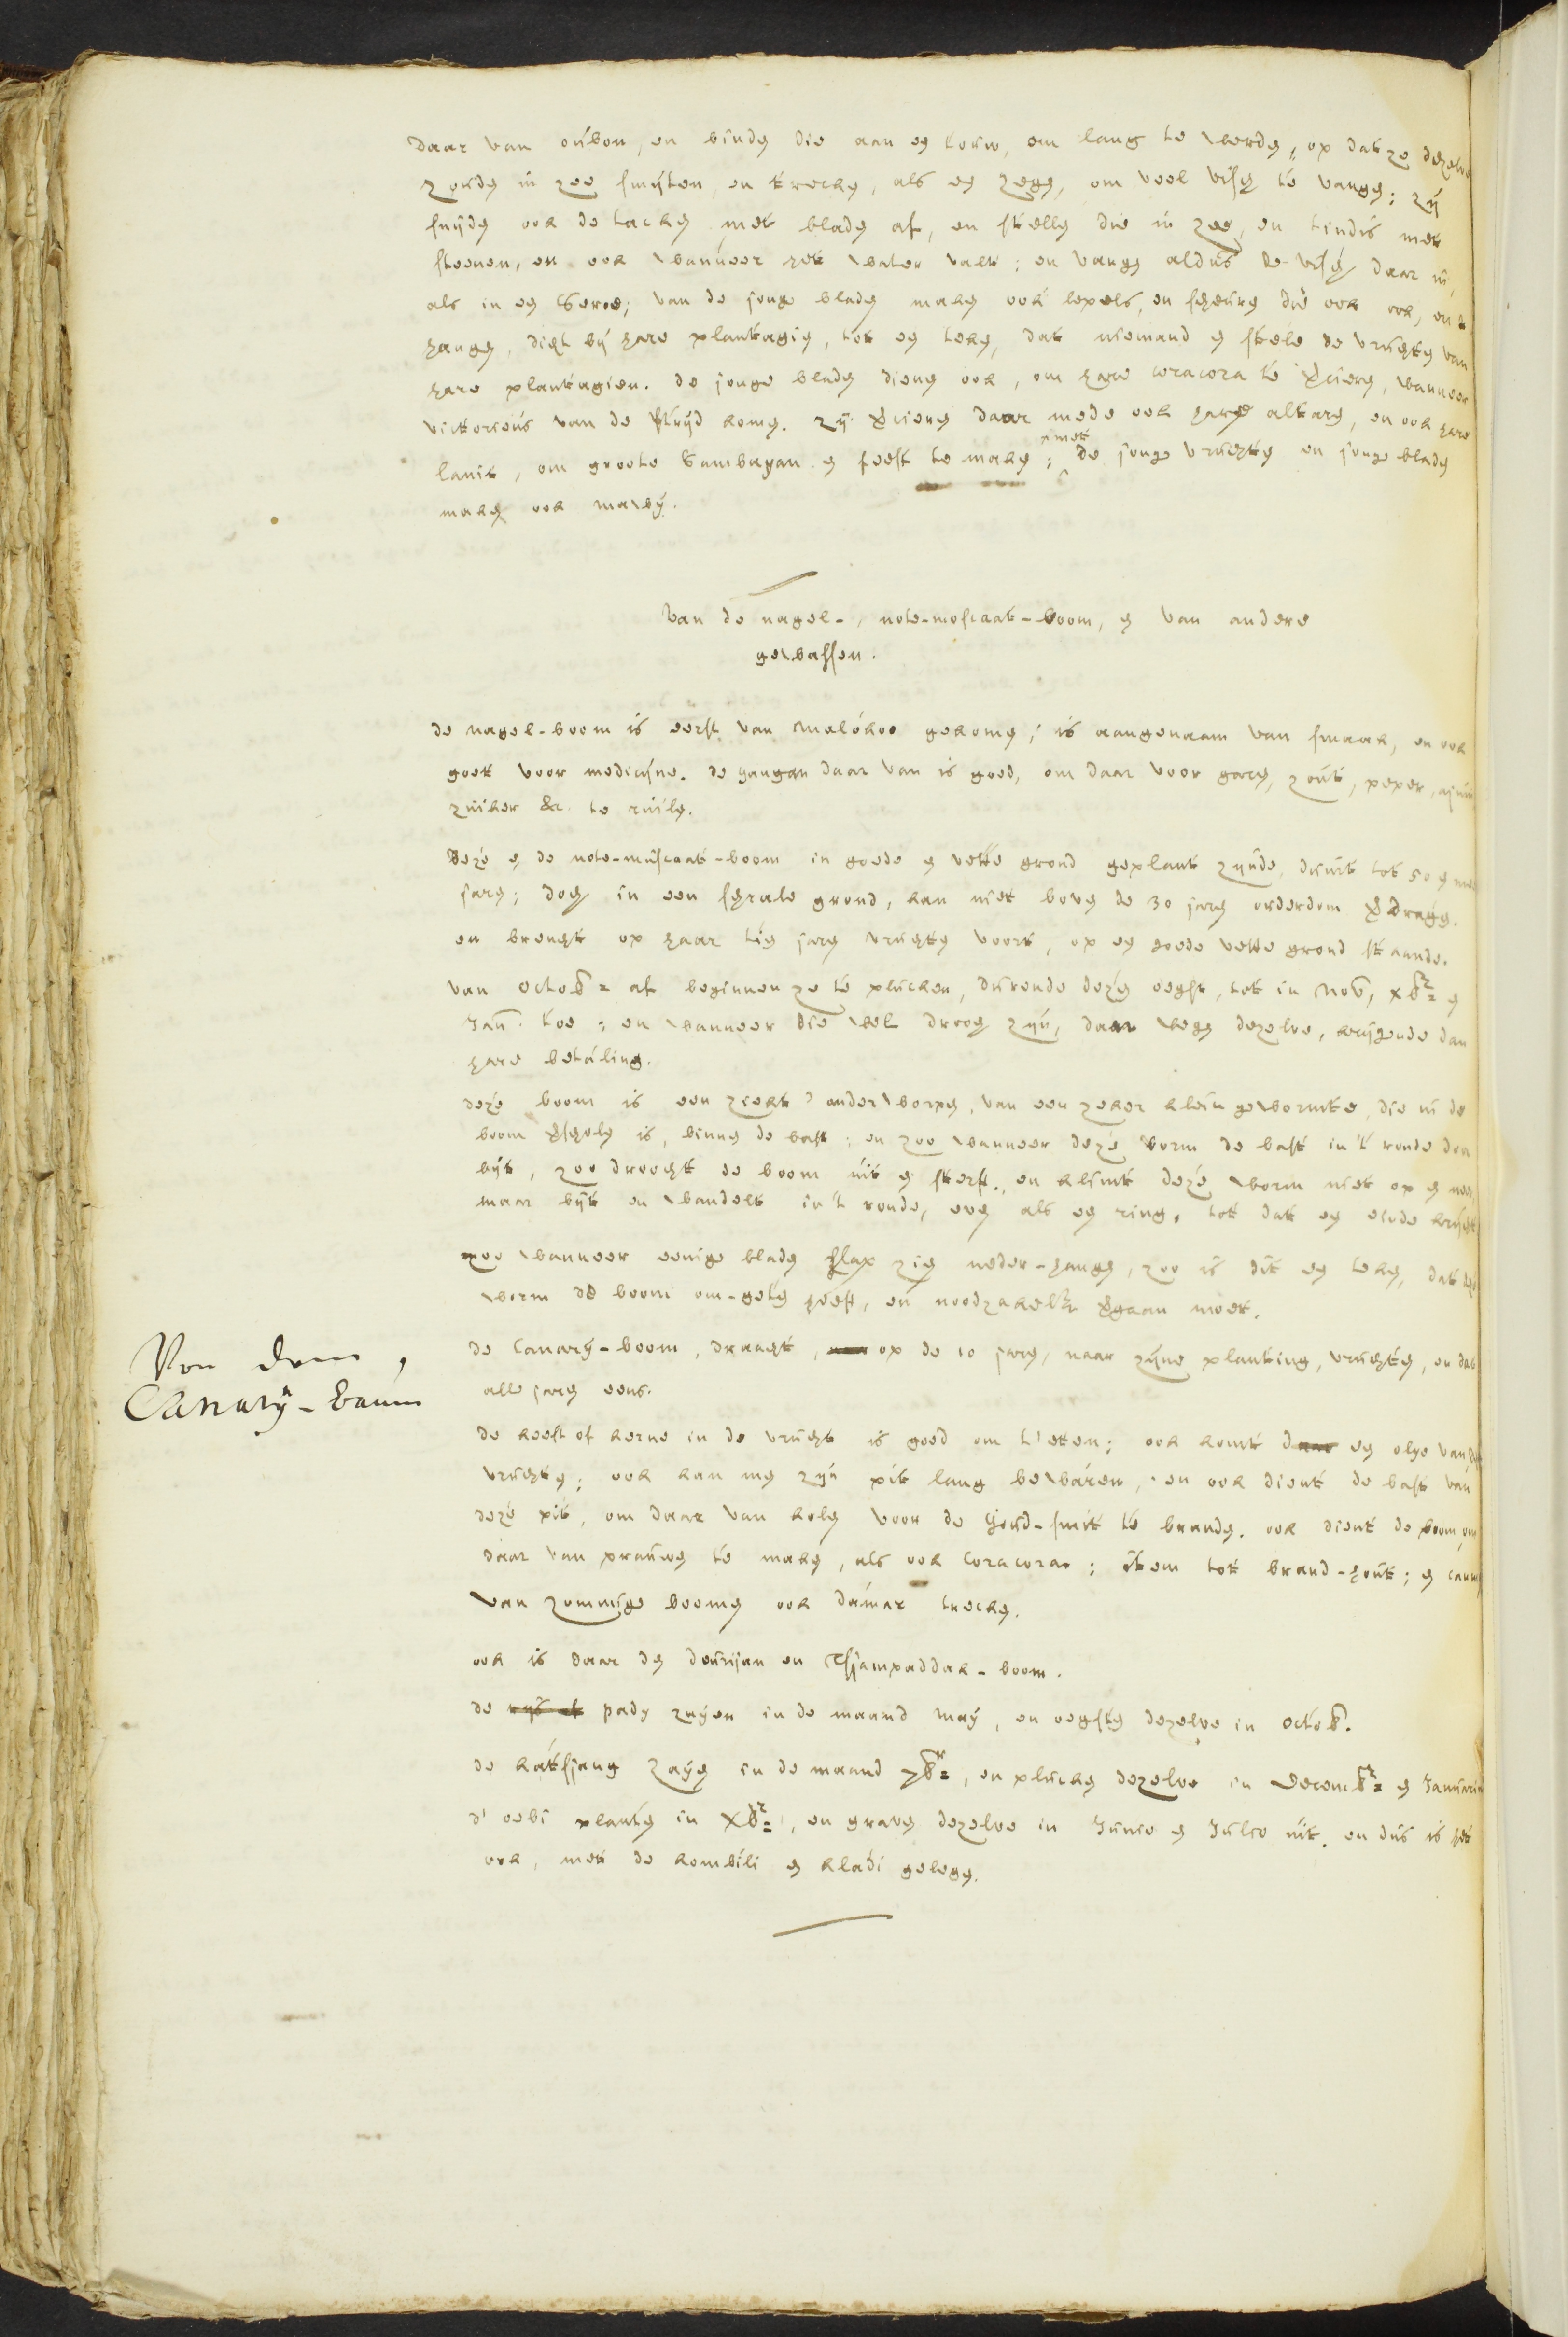 daar van ouben, en binden die aan een touw, om lang te werden, op dat ze dezelve
zouden in zee smyten, en trecken, als een zegen, om veel visch te vangen; zy
snyden ook de tacken met bladen af, en stellen die in zee, en tindis met
steenen, en ook wanneer het water valt; en vangen aldus de visch daar in,
als in een seroe; van de jonge bladen maken ook lepels, en scheuren die ook ook, en
hangen, dicht by hare plantagien, tot een teken, dat niemand en stele de vruchten van
hare plantagien. de jonge bladen dienen ook, om hare coracora te vercieren, wanneer
victorieus van de stryd komen. zy vercieren daar mede ook hare altaren, en ook hare
lanit, om groote sambayan en feest te maken; met de jonge vruchten en jonge bladen
maken ook mawy.
Van de nagel-, note-moscaat-boom, en van andere
gewassen.
de nagel-boom is eerst van Malokoo gekomen; is aangenaam van smaak, en ook
goet voor medicyne. de gangan daar van is goed, om daar voor garen, zout, peper, ajuin
zuiker &c. te ruilen.
Deze en de note-muscaat-boom in goede en vette grond geplant zynde, duurt tot 50 en meer
jaren; doch in een schrale grond, kan niet boven de 30 jaren ouderdom verdragen.
en brengt op haar tien jaren vruchten voort, op een goede vette grond staande.
van Octob= af beginnen ze te plucken, durende dezen oegst, tot in Nov, xbr= en
Jan. toe; en wanneer die wel droog zyn, daar wegen dezelve, krygende dan
hare betaling.
deze boom is een ziekt' onderworpen, van een zeker klein gewormte, die in de
boom verscholen is, binnen de bast; en zoo wanneer deze worm de bast in 't ronde door
byt, zoo droogt de boom uit en sterft. en klimt deze worm niet op en neer
maar byt en wandelt in 't ronde, even als een ring, tot dat een einde krygt
zoo wanneer eenige bladen slap zig neder-hangen, zoo is dit een teken, dat het
worm de boom om-geten heeft, en noodzakelyk vergaan moet.
Von dem
Canary-baum
de Canary-boom, draagt, op de 10 jaren, naar zyne planting, vruchten, en dat
alle jaren eens.
de keest of kerne in de vrucht is goed om t'eten; ook komt daar een olye van de
vruchten; ook kan men zyn pit lang bewaren, en ook dient de bast van
deze pit, om daar van kolen voor de goud-smit te branden. ook dient de boom, om
daar van prauwen te maken, als ook coracora; item tot brand-hout; en
van zommige boomen ook damar trecken.
ook is daar den dourian en Tsjampaddak-boom.
de rys of pady zayen in de maand may, en oegsten dezelve in Octob.
de katsjang zayen in de maand 7br=, en plucken dezelve in Decembr= en Januari
d' oebi planten in Xbr=, en graven dezelve in Junio en Julio uit. en dus is het
ook, met de kombili en kladi gelegen.